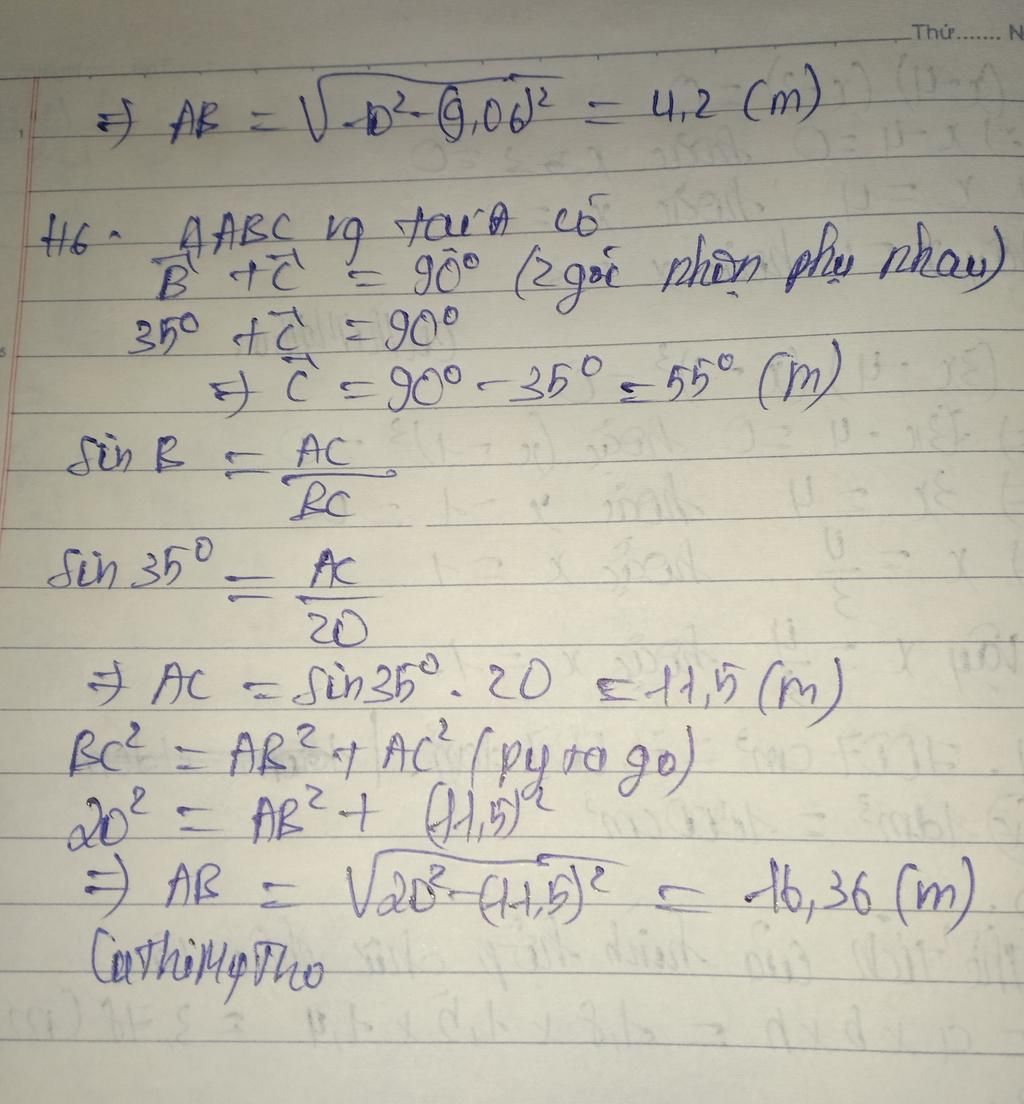 Thứ....... N
⇒ AB = √10² - (9,06)² = 4,2 (m)
H6. ΔABC vg tại A có
B + C = 90° (2 góc nhọn phụ nhau)
35° + C = 90°
⇒ C = 90° - 35° = 55° (m)
sin B = AC/BC
sin 35° = AC/20
⇒ AC = sin35° . 20 = 11,5 (m)
BC² = AB² + AC² (py ta go)
20² = AB² + (11,5)²
⇒ AB = √20² - (11,5)² = 16,36 (m)